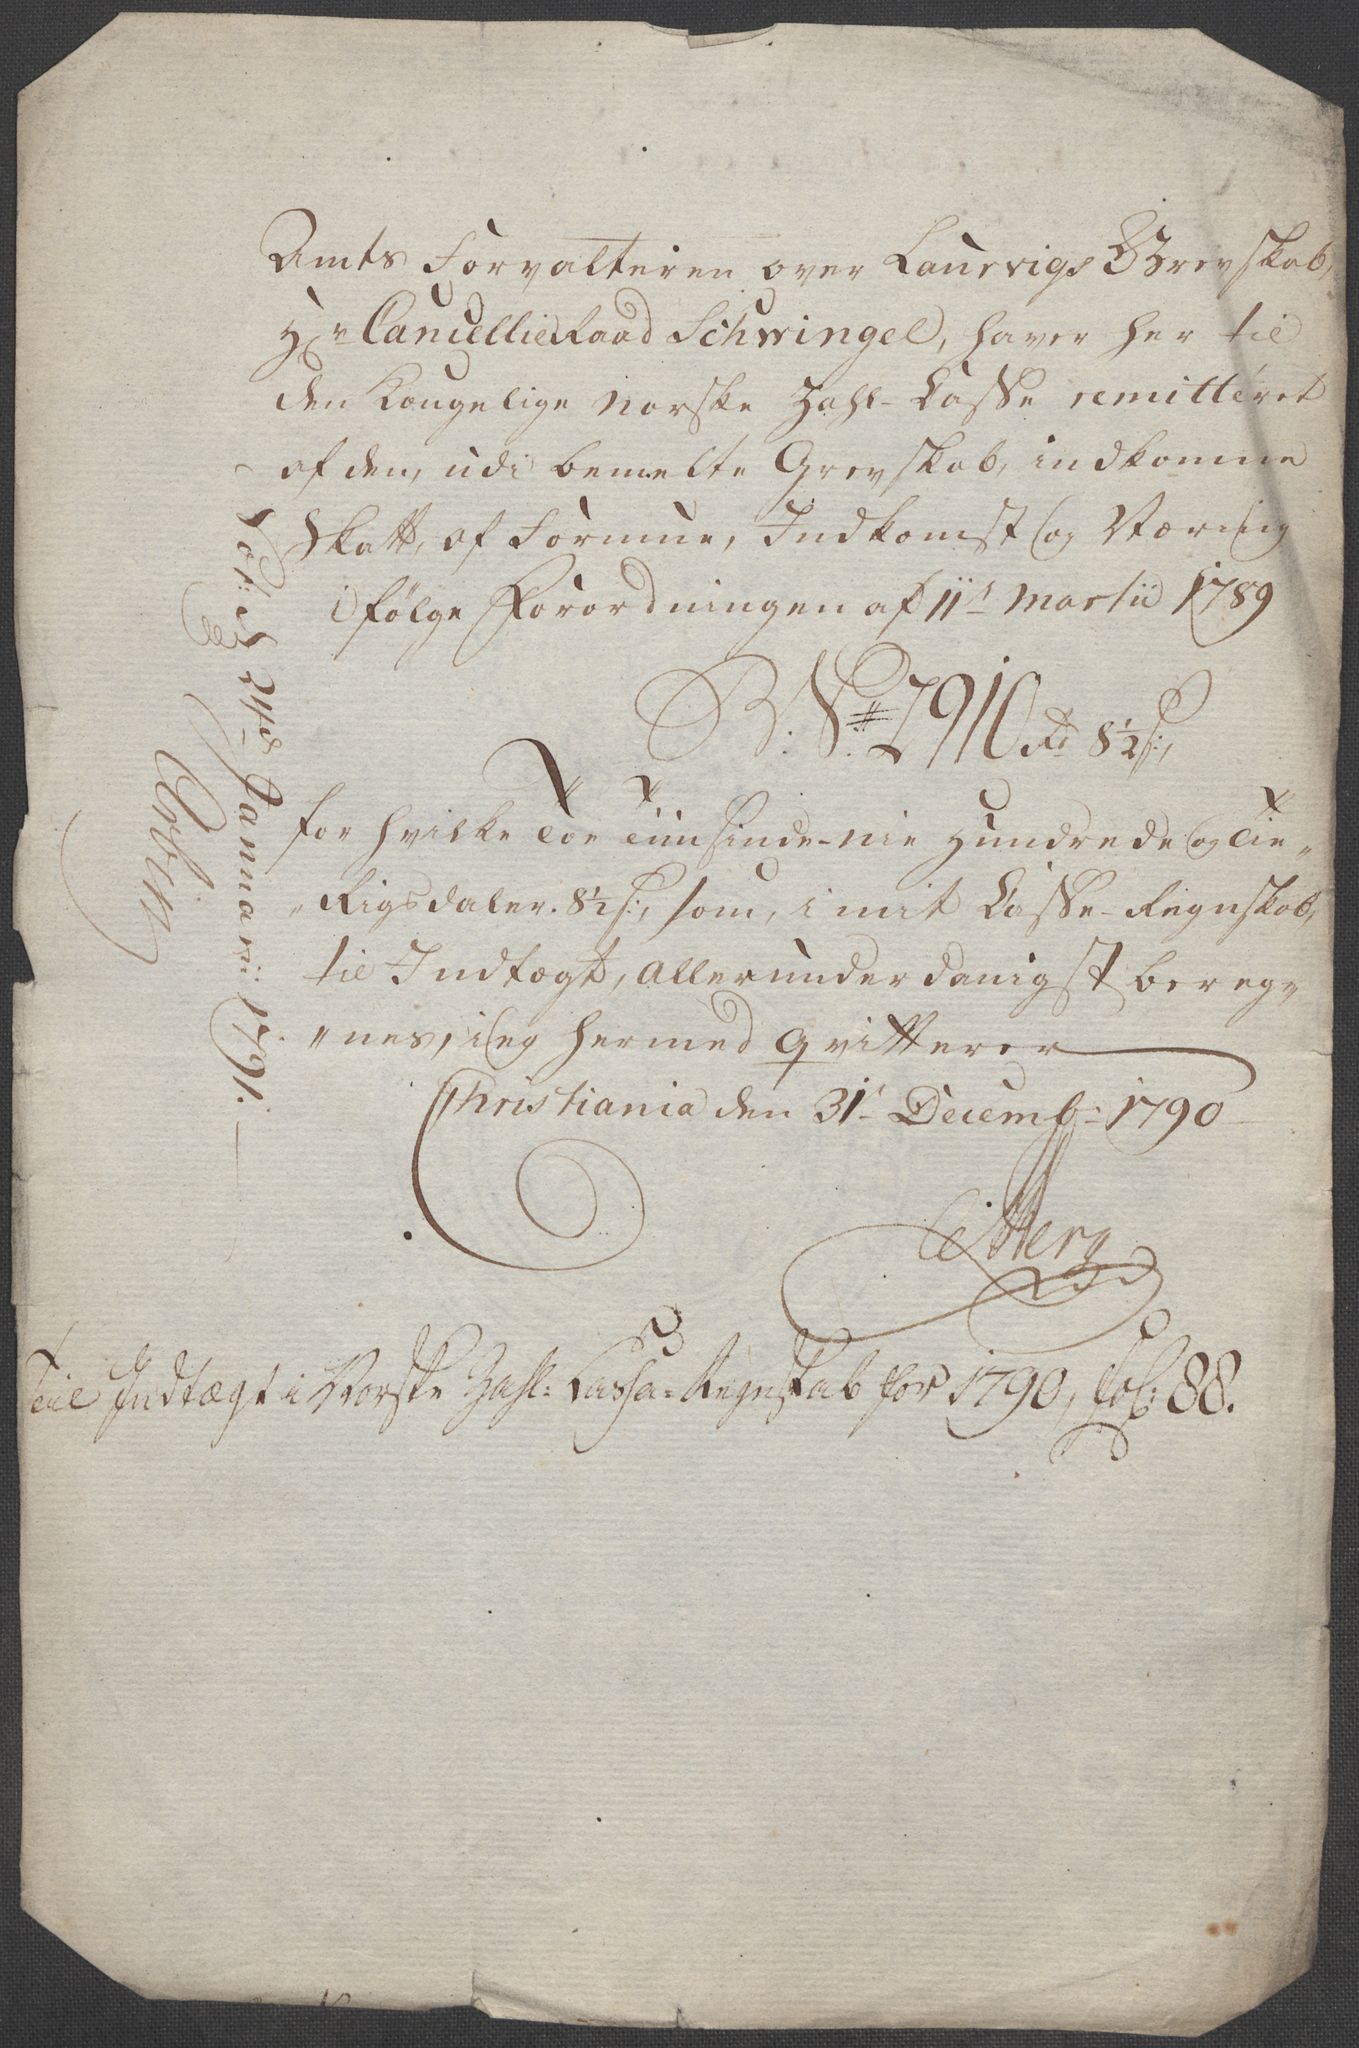 Amts Forvalteren over Laurvigs Grevskab,
Hr. Cancellie Raad Schwingel, haver her til
den Kongelige Norske Zahl-Casse remitteret
af den, udi bemelte Grevskab, indkomne
Skatt, af Formue, Indkomst og Næring
i følge Forordningen af 11te Martii 1789
2910 Rd 8½ s:,
for hvilke Toe Tusinde-nie Hundrede og Tie„
„Rigsdaler. 8½ s:, som, i mit Casse-Regnskab,
til Indtægt, allerunderdanigst bereg„
„nes, ieg hermed qvitterer
Christiania den 31te Decembr: 1790
til Indtægt i Norske Zahl-Cassa-Regnskab for 1790, fol: 88.
Not: d. 24de Januari: 1791.